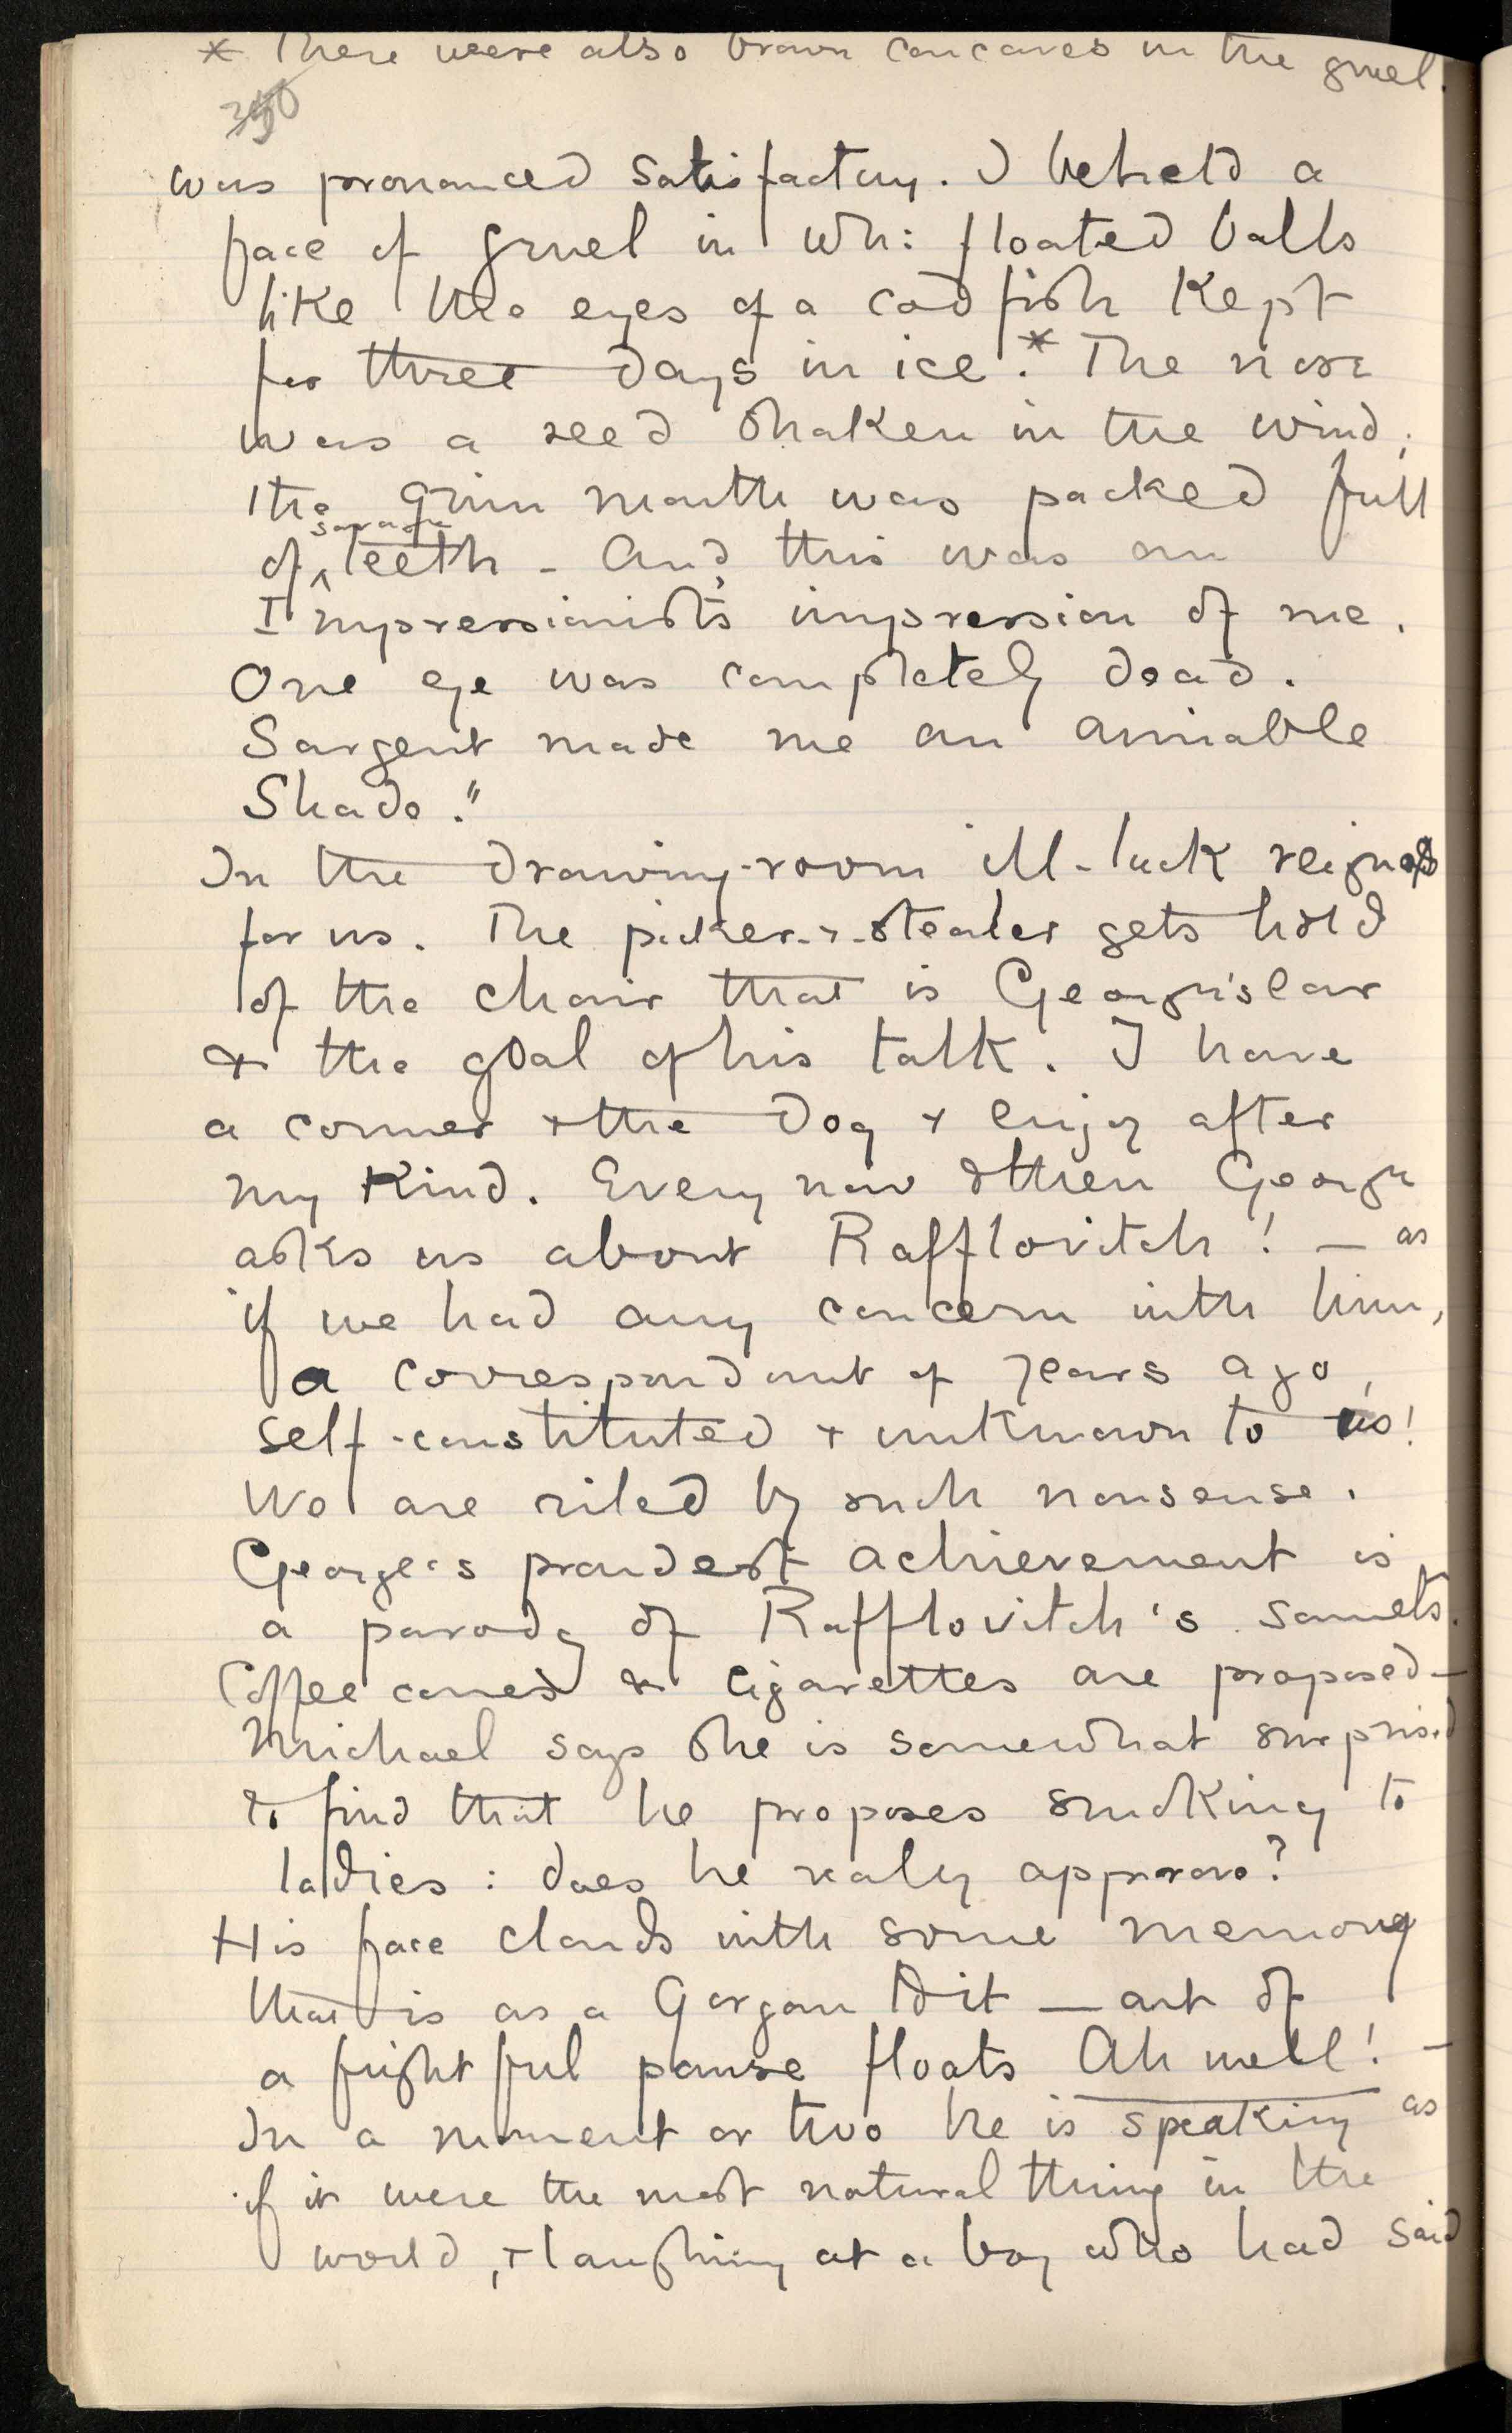 * There were also brown concaves in the gruel.
350
was pronounced satisfactory. I beheld a
face of gruel in wh: floated balls
like the eyes of a codfish kept
for three days in ice.* The nose
was a reed shaken in the wind;
the grim mouth was packed full
savage
of ^ teeth - And this was an
Impressionist's impression of me.
One eye was completely dead.
Sargent made me an amiable
Shade."
In the drawing-room ill-luck reigns
for us. The picker-&-stealer gets hold
of the chair that is George's ear
& the goal of his talk. I have
a corner & the dog & enjoy after
my kind. Every now & then George
asks us about Rafflovitch! — as
if we had any concern with him,
a correspondent of years ago,
self-constituted & unknown to us!
We are riled by such nonsense.
George's proudest achievement is
a parody of Rafflovitch's sonnets.
Coffee comes & Cigarettes are proposed —
Michael says she is somewhat surprised
to find that he proposes smoking to
ladies: does he really approve?
His face clouds with some memory
that is as a Gorgon to it — out of
a frightful pause floats Ah well! —
In a moment or two he is speaking as
if it were the most natural thing in the
world, & laughing at a boy who had said